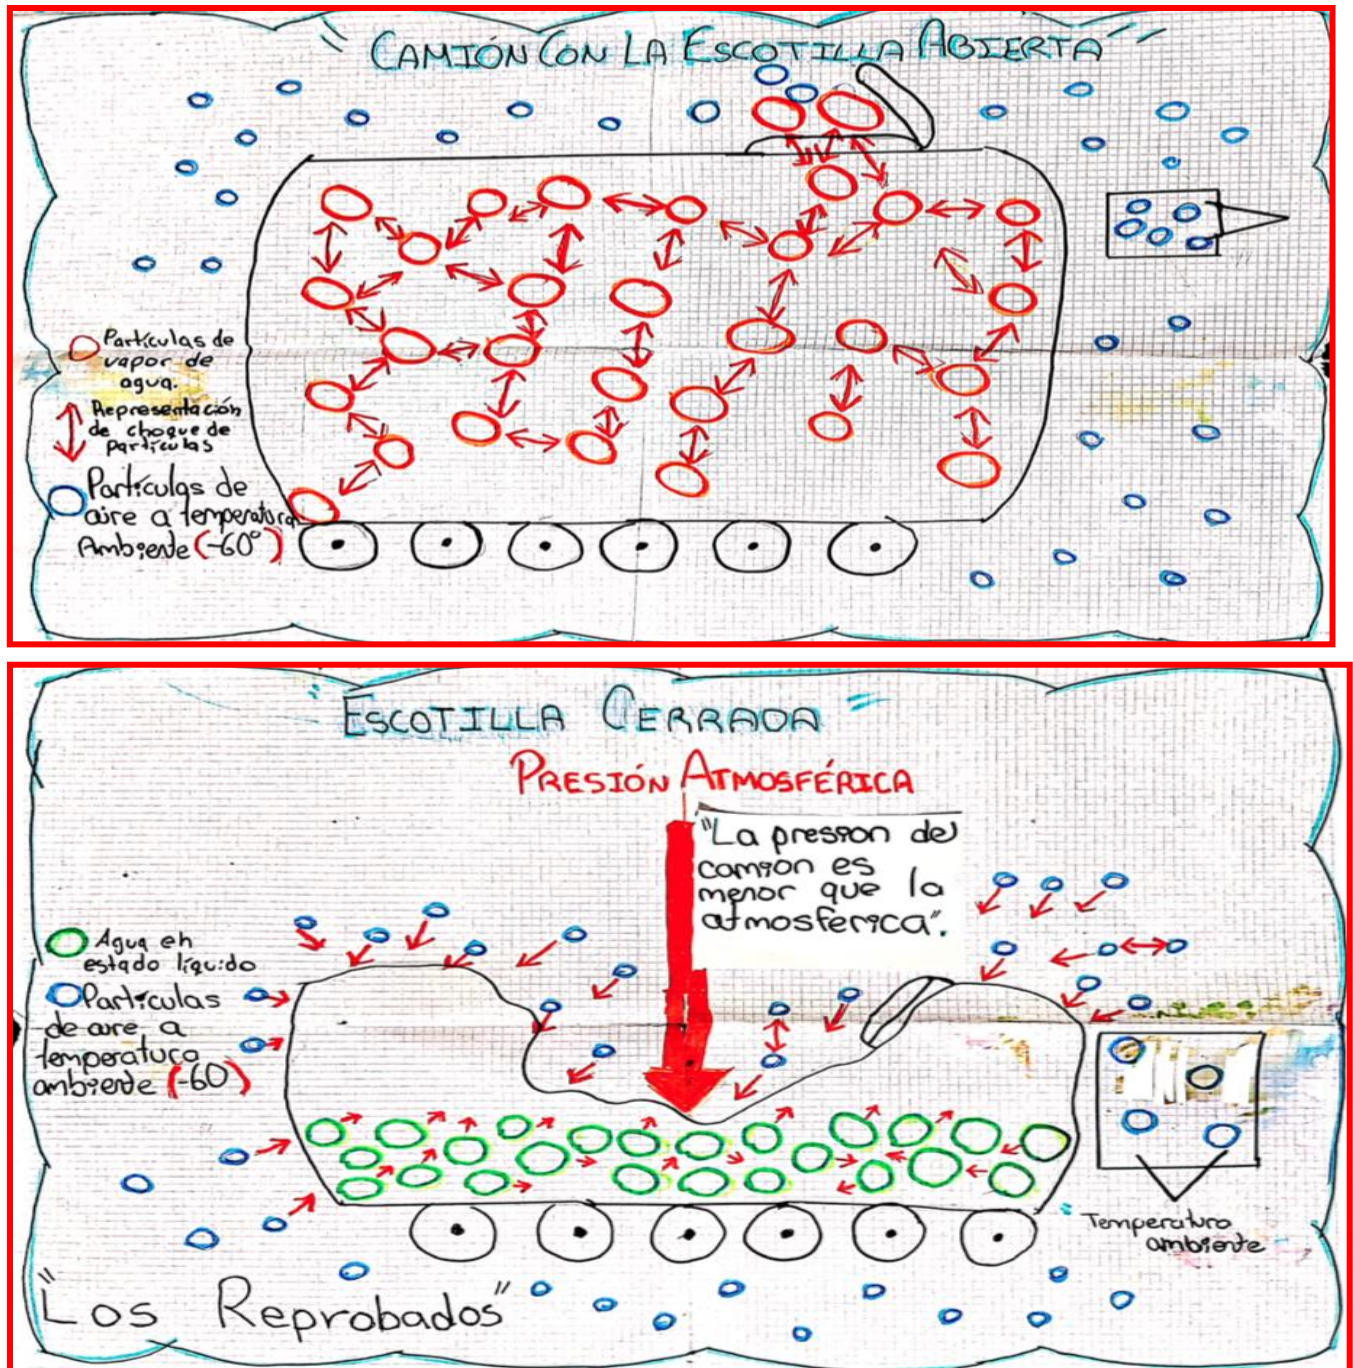 "CAMIÓN CON LA ESCOTILLA ABIERTA"
Partículas de
vapor de
agua.
Representación
de choque de
partículas
Partículas de
aire a temperatura
Ambiente (-60°)
"ESCOTILLA CERRADA"
PRESIÓN ATMOSFÉRICA
"La presion del
camion es
menor que la
atmosferica".
Agua en
estado líquido
Partículas
de aire, a
temperatura
ambiente (-60)
Temperatura
ambiente
"Los Reprobados"